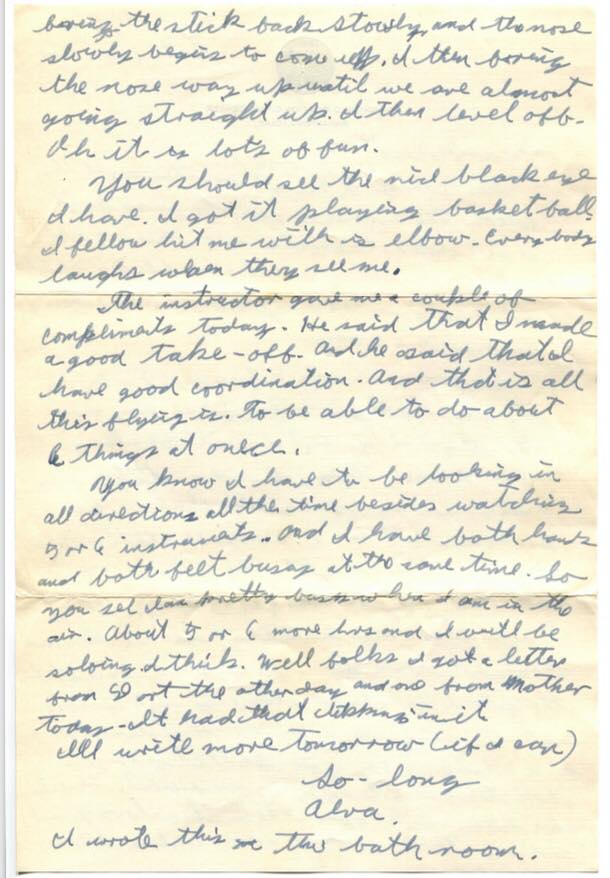 bring the stick back slowly, and the nose
slowly begins to come up. I then bring
the nose way up until we are almost
going straight up. I then level off.
Oh it is lots of fun.
You should see the nice black eye
I have. I got it playing basket ball
A fellow hit me with is elbow. Every body
laughs when they see me.
The instructor gave me a couple of
compliments today. He said that I made
a good take-off. And he said that I
have good coordination. And that is all
this flying is. To be able to do about
6 things at once.
You know I have to be looking in
all directions all the time besides watching
5 or 6 instruments. And I have both hands
and both feet busy at the same time. So
you see I am pretty busy when I am in the
air. About 5 or 6 more hrs and I will be
soloing I think. Well folks I got a letter
from the other day and one from Mother
today - It had that clipping in it
I'll write more tomorrow (if I can)
So-long
Alva.
I wrote this in the bath room.